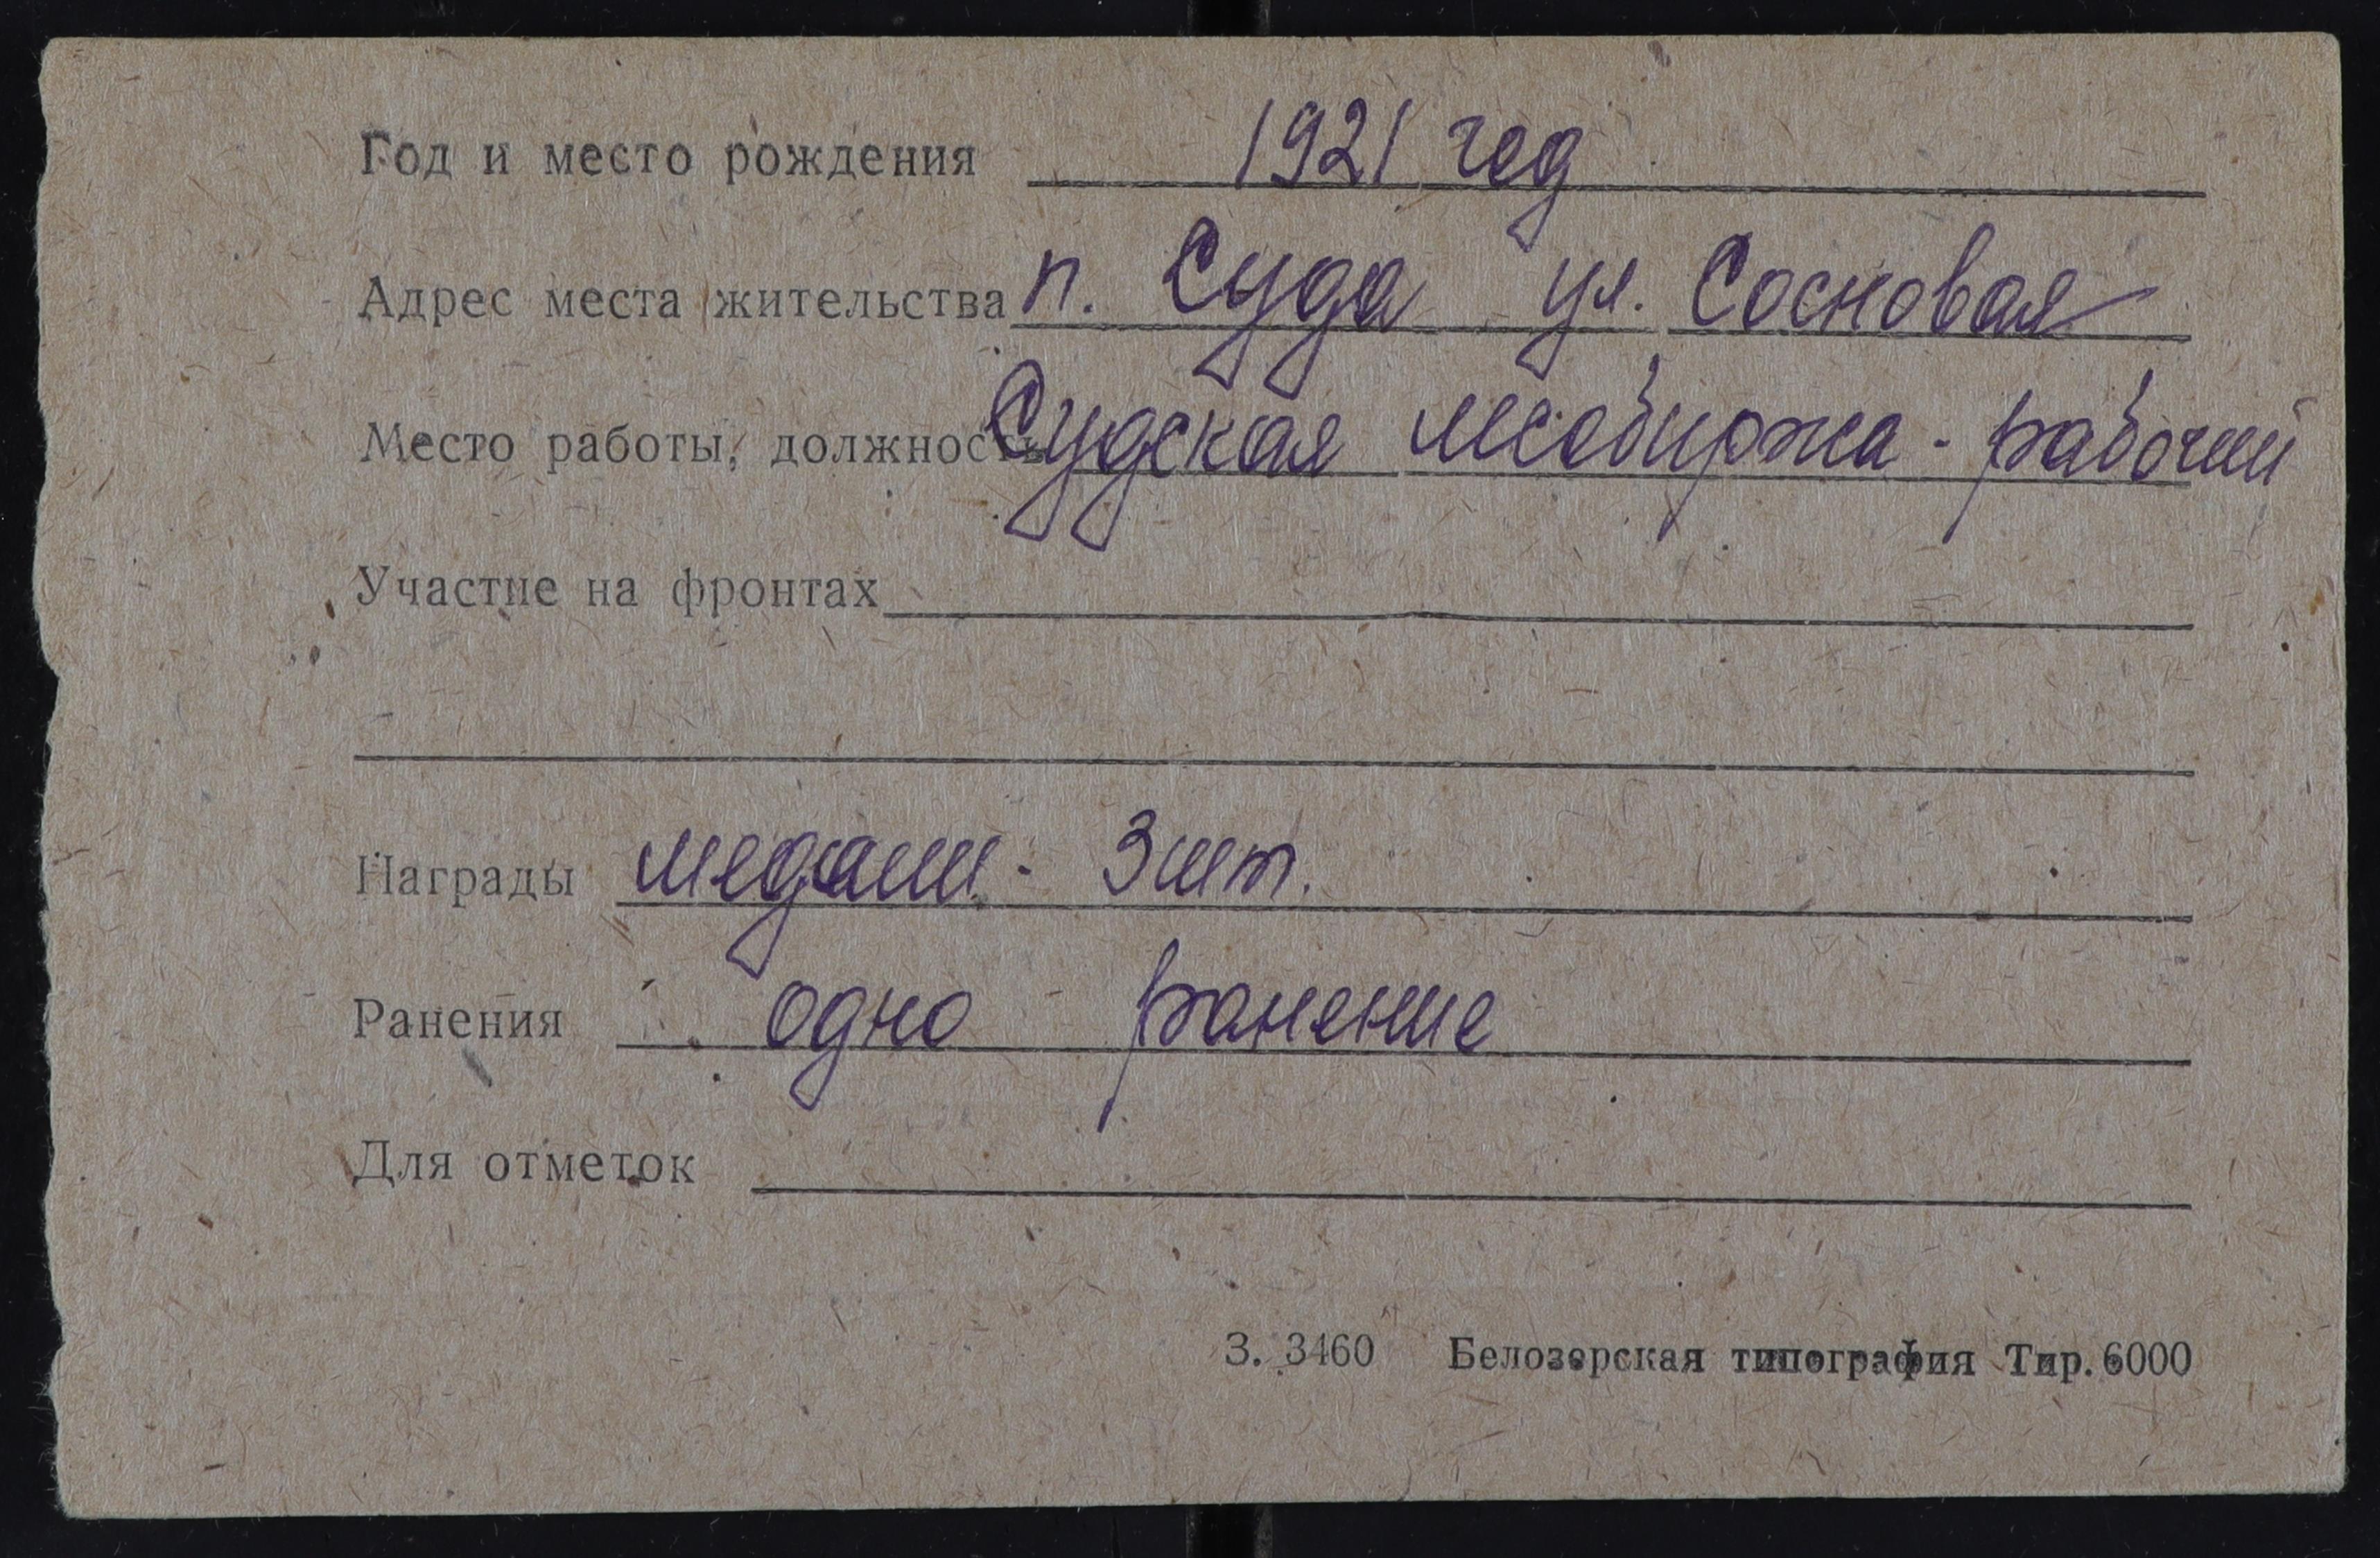 Год и место рождения 1921 год
Адрес места жительства п. Суда ул. Сосновая
Место работы, должность Судская лесобиржа - рабочий
Участие на фронтах
Награды медали - 3 шт.
Ранения одно ранение
Для отметок
З. 3460 Белозерская типография Тир. 6000